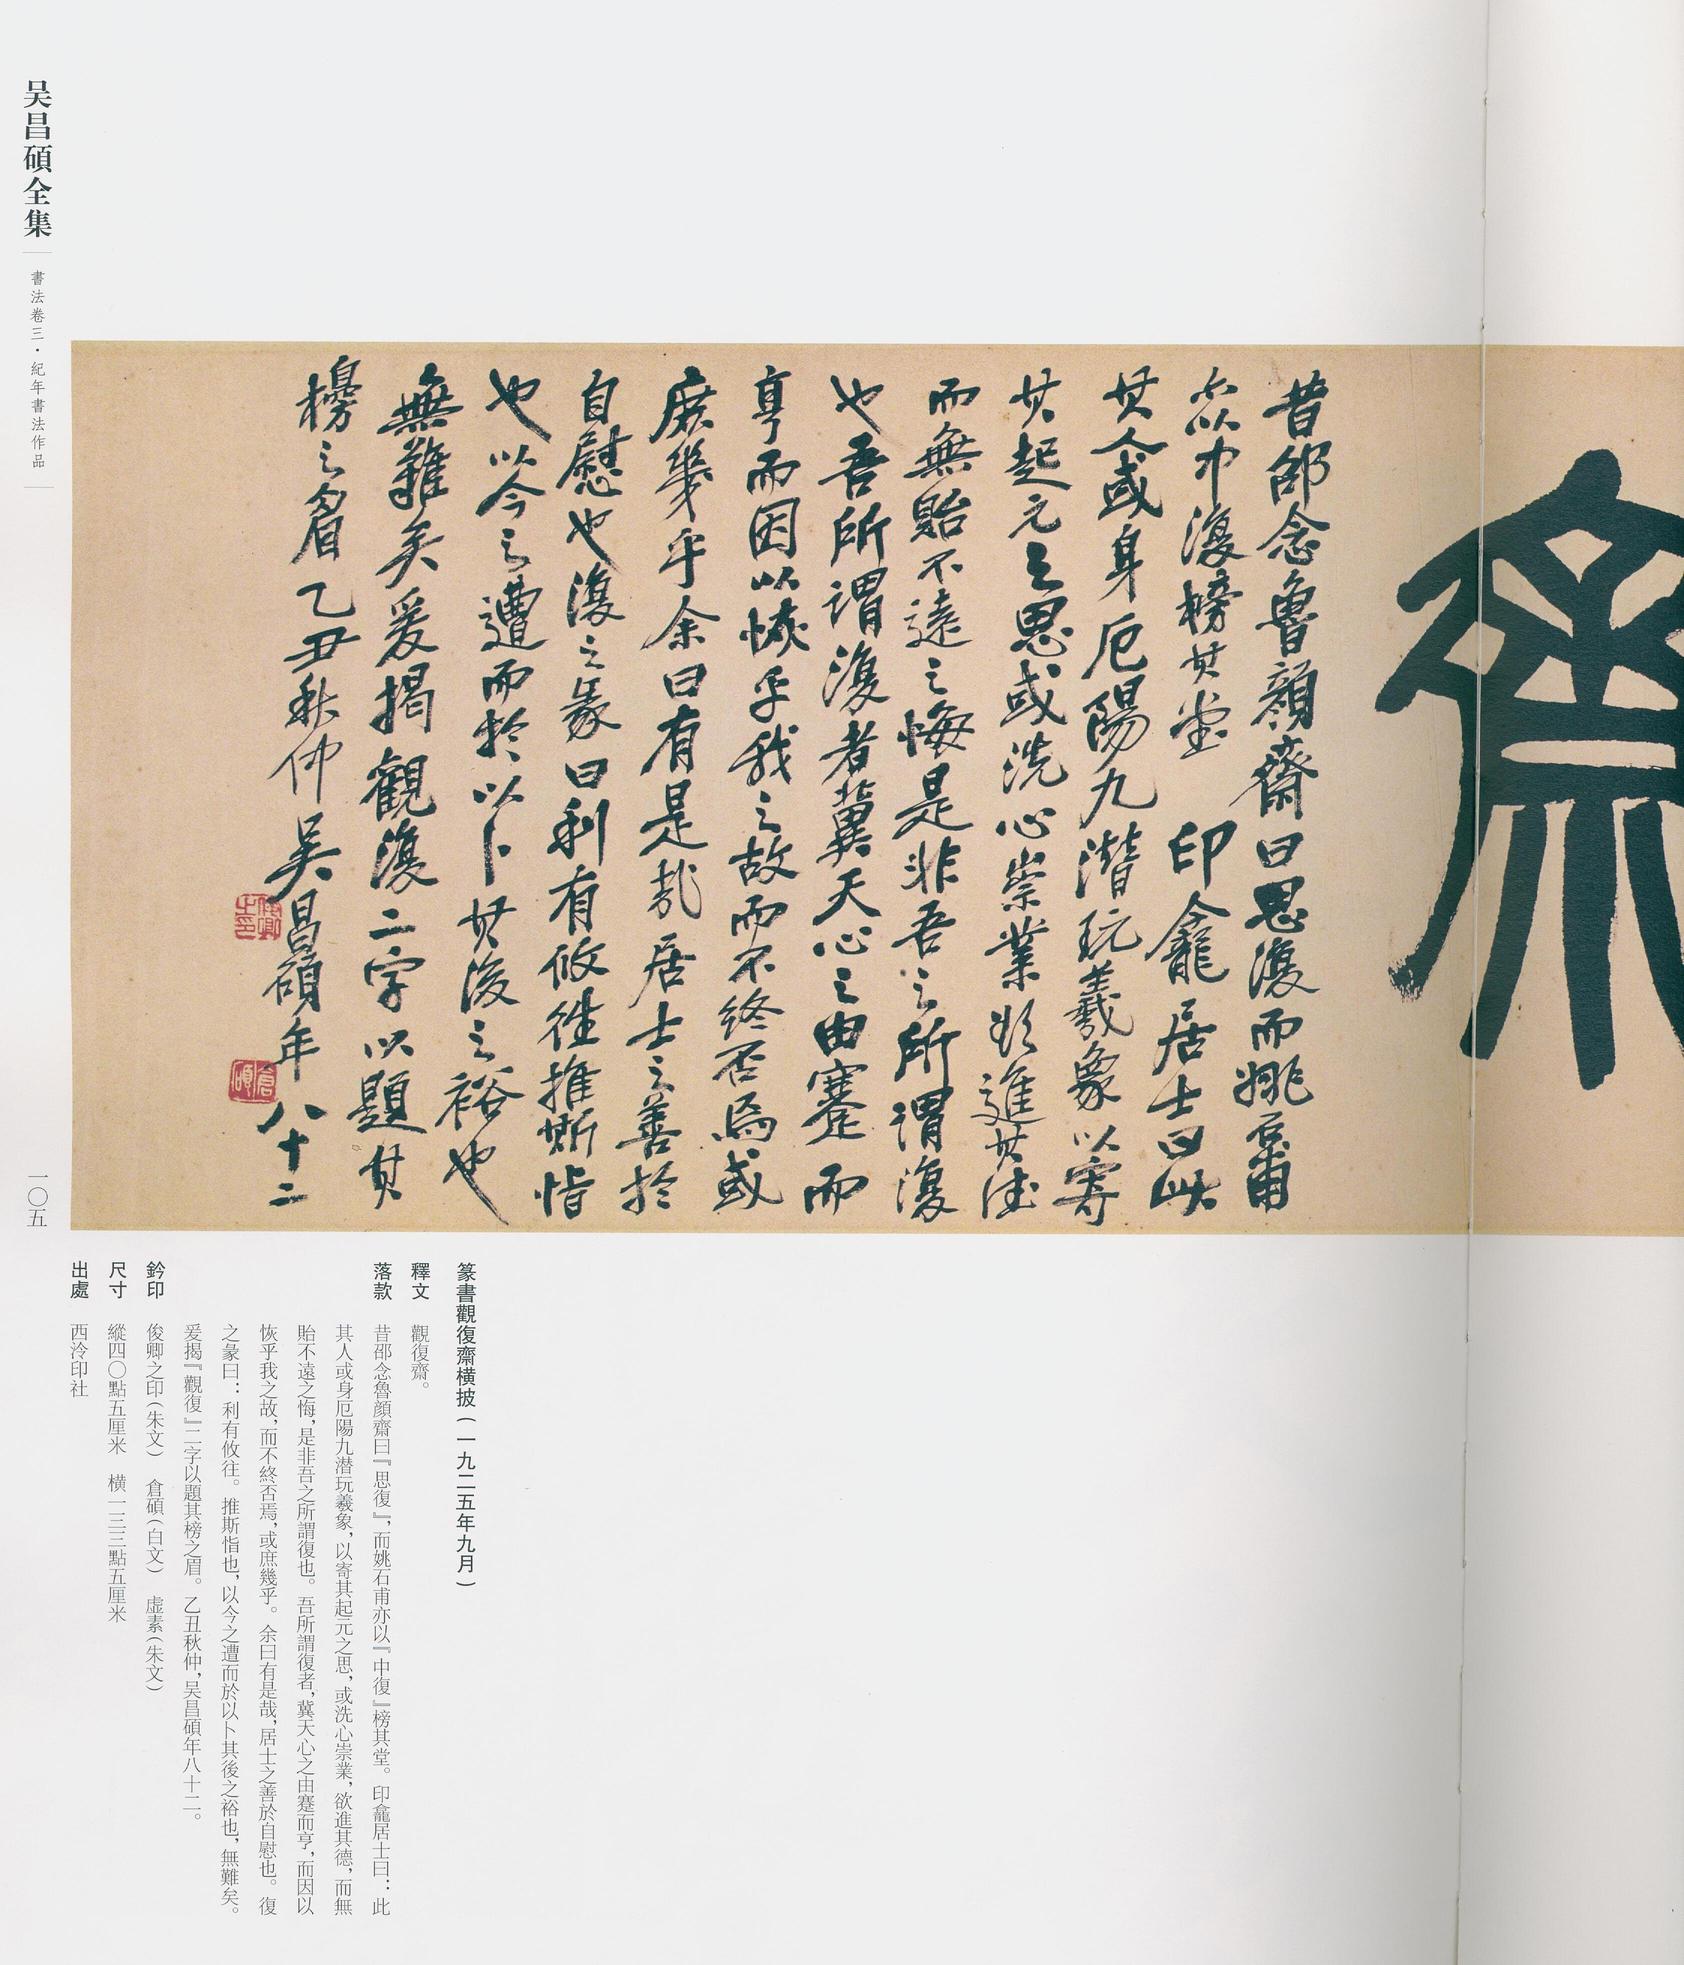 齋
昔邵念魯顏齋曰思復而姚石甫
亦以中復榜其堂 印龕居士曰此
其人或身厄陽九潛玩羲象以寄
其起元之思或洗心崇業欲進其德
而無貽不遠之悔是非吾之所謂復
也吾所謂復者冀天心之由蹇而
亨而因以恢乎我之故而不終否焉或
庶幾乎余曰有是哉居士之善於
自慰也復之彖曰利有攸往推斯恉
也以今之遭而於以卜其後之裕也
無難矣爰揭觀復二字以題其
榜之眉乙丑秋仲吳昌碩年八十二
俊卿之印
倉碩
篆書觀復齋橫披(一九二五年九月)
釋文 觀復齋。
落款 昔邵念魯顏齋曰『思復』,而姚石甫亦以『中復』榜其堂。印龕居士曰:此
其人或身厄陽九潛玩羲象,以寄其起元之思,或洗心崇業,欲進其德,而無
貽不遠之悔,是非吾之所謂復也。吾所謂復者,冀天心之由蹇而亨,而因以
恢乎我之故,而不終否焉,或庶幾乎。余曰有是哉,居士之善於自慰也。復
之彖曰:利有攸往。推斯恉也,以今之遭而於以卜其後之裕也,無難矣。
爰揭『觀復』二字以題其榜之眉。乙丑秋仲,吴昌碩年八十二。
鈐印 俊卿之印(朱文) 倉碩(白文) 虛素(朱文)
尺寸 縱四〇點五厘米 橫一三三點五厘米
出處 西泠印社
吴昌碩全集
書法卷三·紀年書法作品
一〇五